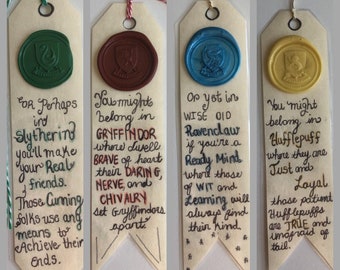 For Perhaps
in
Slytherin
you'll make
your Real
friends.
Those Cunning
folks use any
means to
Achieve their
Ends.
You might
belong in
GRYFFINDOR
where dwell
BRAVE of heart
their DARING,
NERVE, and
CHIVALRY
set Gryffindors
apart.
Or yet in
WISE OLD
Ravenclaw
if you're a
Ready Mind
where those
of WIT and
Learning will
always find
their kind.
You might
belong in
Hufflepuff
where they are
Just and
Loyal
those patient
Hufflepuffs
are TRUE and
unafraid of
toil.